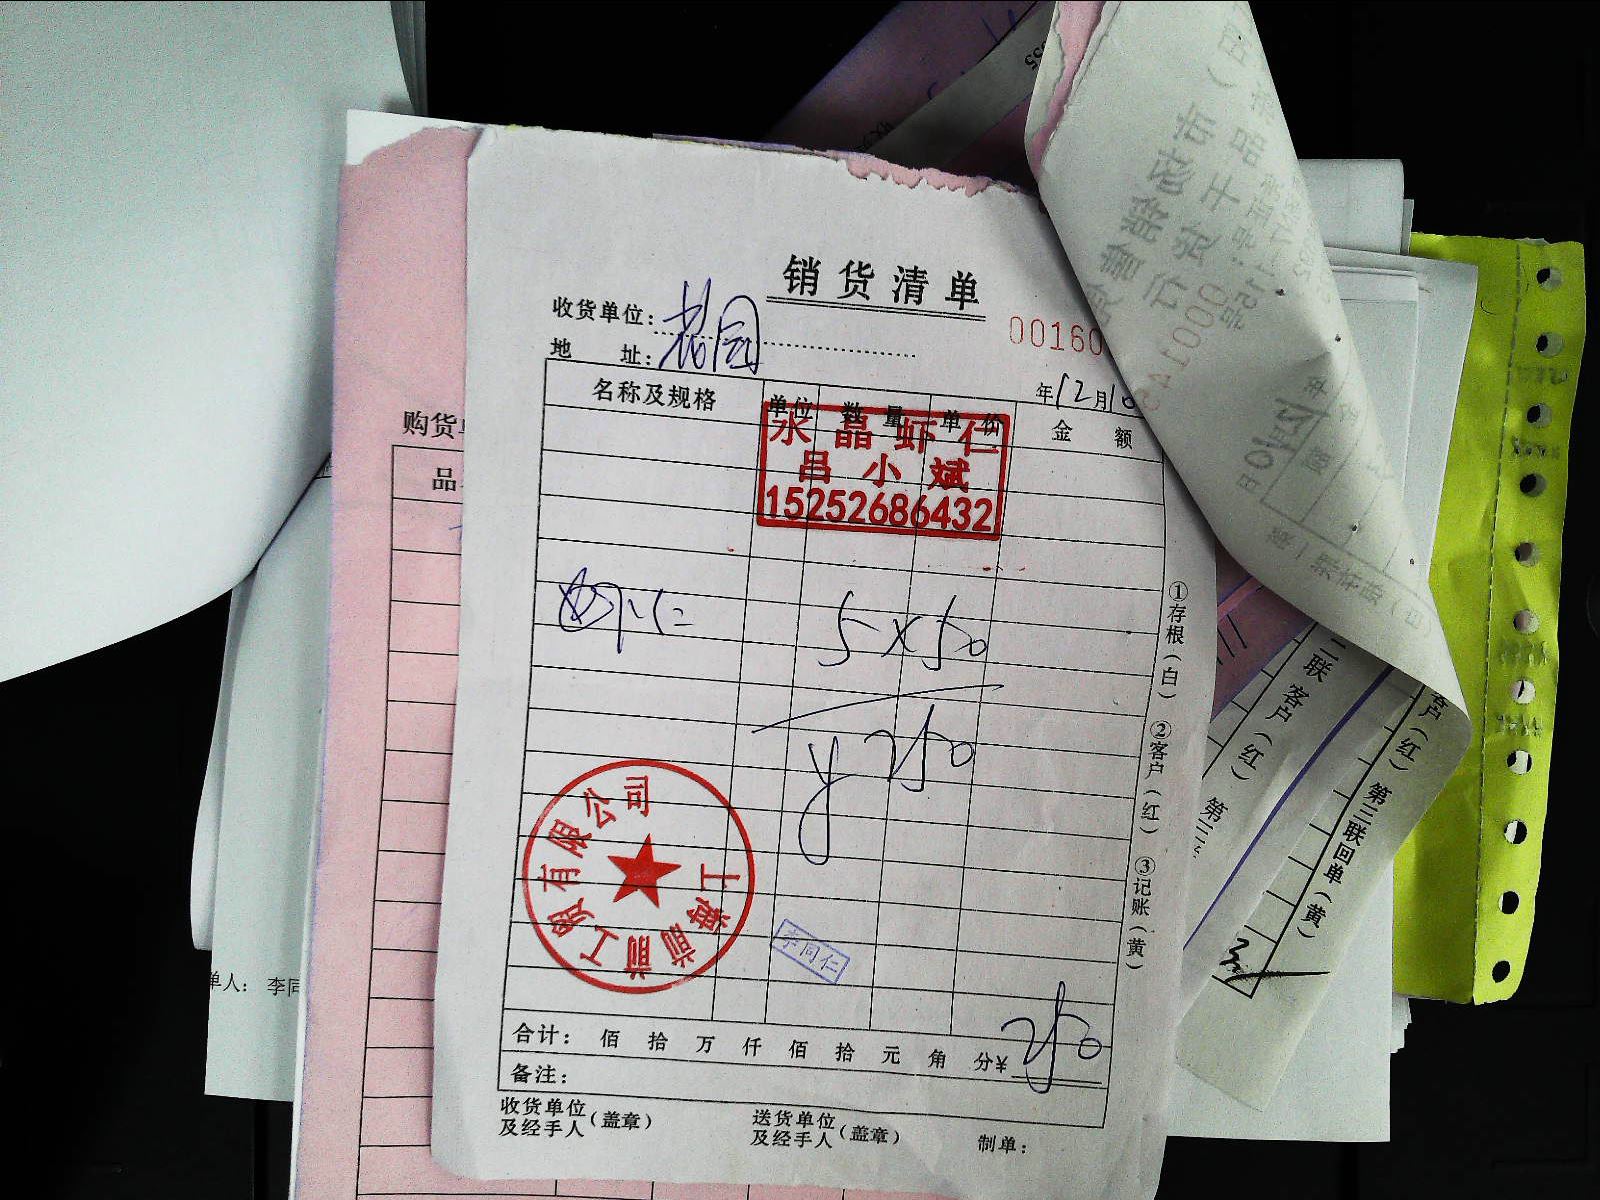 销货清单
收货单位：花园
00160
地 址：
年12月10
名称及规格 单位 数量 单价 金额
永晶虾仁
吕小斌
15252686432
虾仁 5×50
¥250
上海前前工贸有限公司
李同仁
合计： 佰 拾 万 仟 佰 拾 元 角 分¥ 250
备注：
收货单位及经手人（盖章） 送货单位及经手人（盖章） 制单：
①存根（白） ②客户（红） ③记账（黄）
购货
品
单人： 李同
二联 客户（红） 第三
客户（红） 第三联回单（黄）